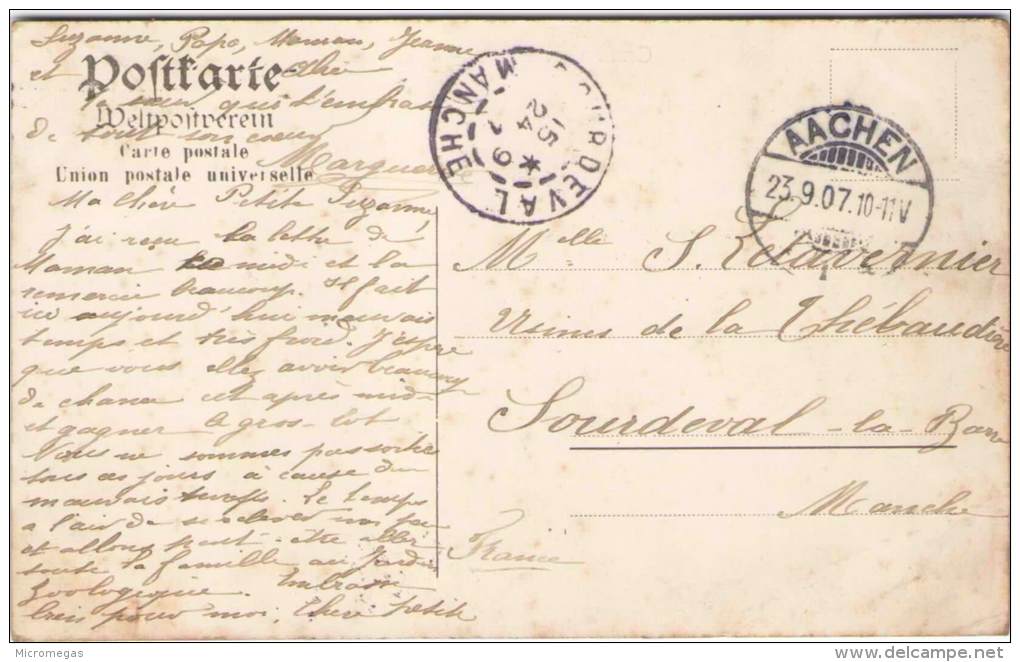 Suzanne, Papa, Maman, Jeanne
et
Chère
Postkarte
sœur qui t'embrasse
Weltpostverein
de tout son cœur
Carte postale
Marguer
Union postale universelle
Ma Chère Petite Suzanne,
J'ai reçu la lettre de
Maman midi et la
remercie beaucoup. Il fait
ici aujourd'hui mauvais
temps et très froid. J'espère
que vous allez avoir beaucoup
de chance cet après midi
et gagner le gros lot
Nous ne sommes pas sortis
tous ces jours à cause du
mauvais temps. Le temps
a l'air de se relever un peu
et allons peut-être aller
toute la famille au Jardin
Zoologique. Embrasse
bien pour moi, Chère petite
SOURDEVAL
MANCHE
15
24
9
AACHEN
23.9.07.10-11V
1
Melle S. Letavernier
Usines de la Thébaudière
Sourdeval-la-Barre
Manche
France
Micromegas
delcampe.net